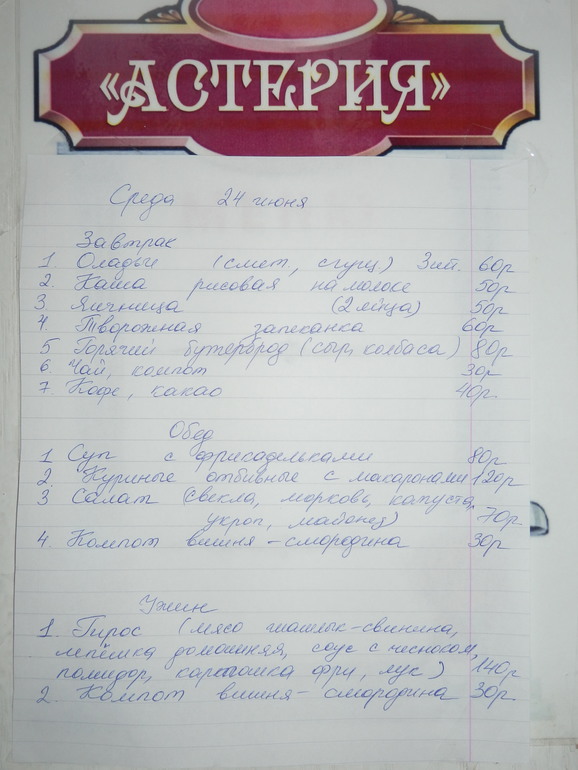 «АСТЕРИЯ»
Среда 24 июня
Завтрак
1 Оладьи (смет., сгущ) 3шт. 60р
2. Каша рисовая на молоке 50р
3 Яичница (2 яйца) 50р
4. Творожная запеканка 60р
5 Горячий бутерброд (сыр, колбаса) 80р
6 Чай, компот 30р
7. Кофе, какао 40р.
Обед
1 Суп с фрикадельками 80р
2 Куриные отбивные с макаронами 120р
3 Салат (свекла, морковь, капуста,
укроп, майонез) 70р
4. Компот вишня-смородина 30р
Ужин
1. Гирос (мясо шашлык-свинина,
лепёшка домашняя, соус с чесноком,
помидор, картошка фри, лук) 140р
2. Компот вишня-смородина 30р.